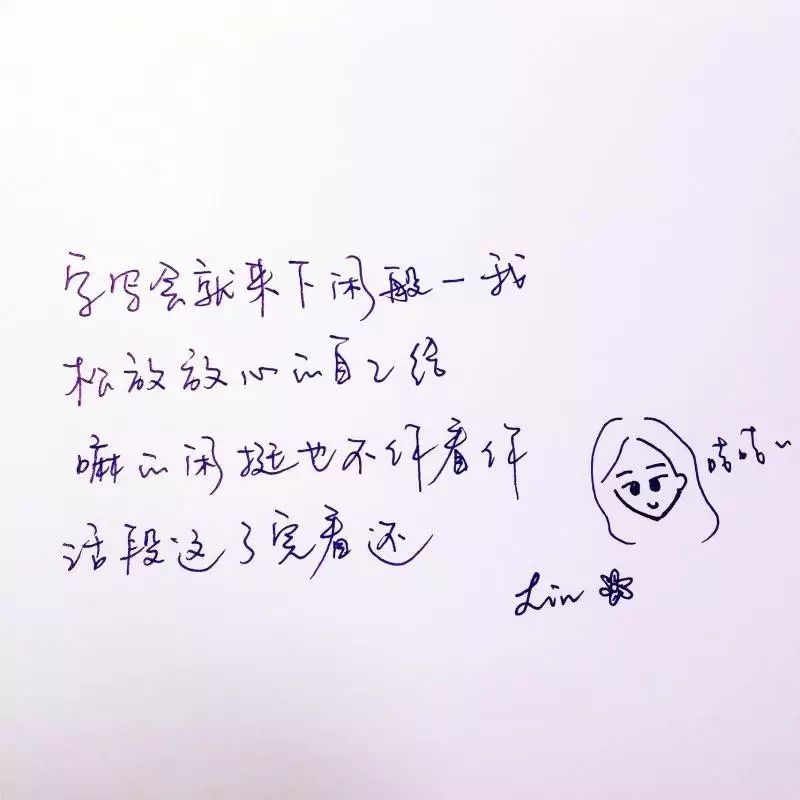 字写会就来下闲般一我
松放放心的自己给
嘛的闲挺也不伴看伴
话段这了完看还
咭咭~
Lin